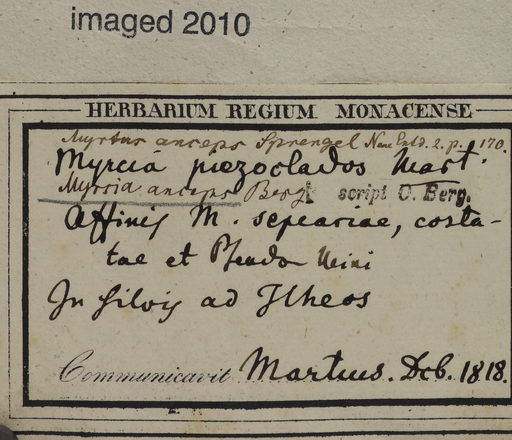 imaged 2010
HERBARIUM REGIUM MONACENSE
Myrtus anceps Sprengel Neue Entd. 2. p. 170.
Myrcia piezoclados Mart.
Myrcia anceps Berg! script O. Berg.
Affinis M. sepiariae, costa-
tae et Pseudo Mini
In silvis ad Ilheos
Communicavit Martius. Dcb. 1818.